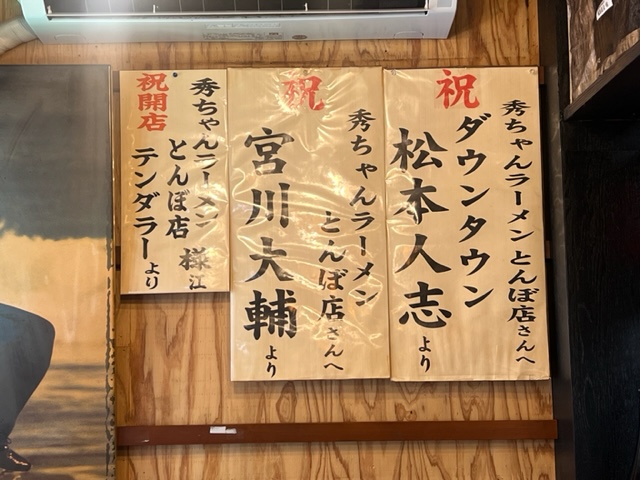 祝
秀ちゃんラーメン とんぼ店さんへ
ダウンタウン
松本人志より
祝
秀ちゃんラーメン
とんぼ店さんへ
宮川大輔より
祝開店
秀ちゃんラーメン
とんぼ店 様江
テンダラーより